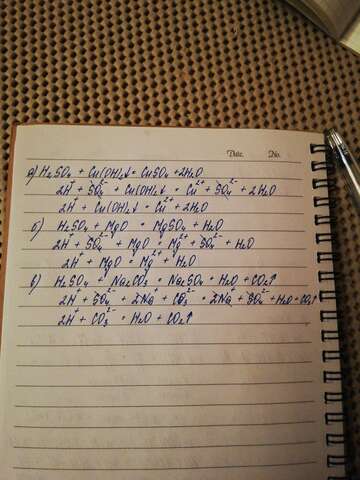 Date. No.
а) H₂SO₄ + Cu(OH)₂↓ = CuSO₄ + 2H₂O
2H⁺ + SO₄²⁻ + Cu(OH)₂↓ = Cu²⁺ + SO₄²⁻ + 2H₂O
2H⁺ + Cu(OH)₂↓ = Cu²⁺ + 2H₂O
б) H₂SO₄ + MgO = MgSO₄ + H₂O
2H⁺ + SO₄²⁻ + MgO = Mg²⁺ + SO₄²⁻ + H₂O
2H⁺ + MgO = Mg²⁺ + H₂O
в) H₂SO₄ + Na₂CO₃ = Na₂SO₄ + H₂O + CO₂↑
2H⁺ + SO₄²⁻ + 2Na⁺ + CO₃²⁻ = 2Na⁺ + SO₄²⁻ + H₂O + CO₂↑
2H⁺ + CO₃²⁻ = H₂O + CO₂↑